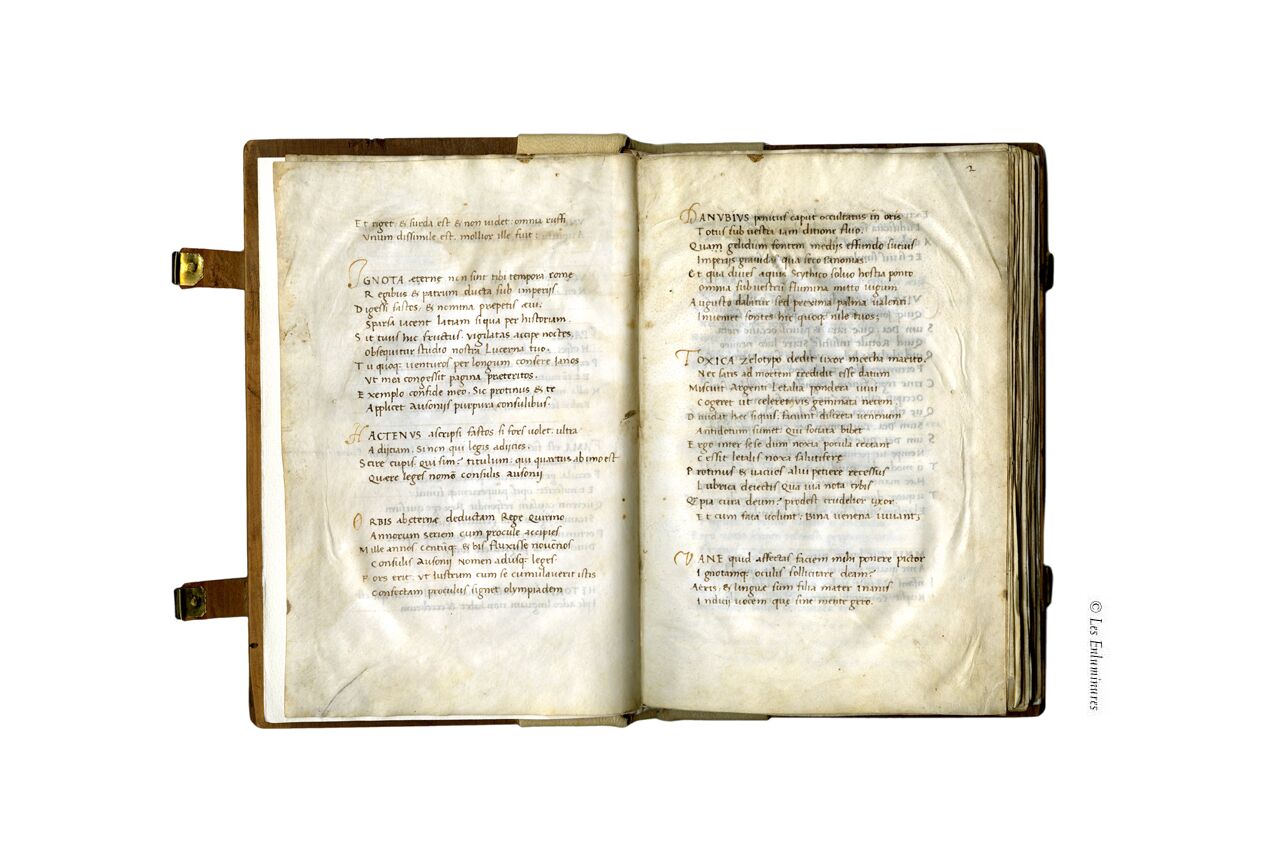 Et riget, & surda est & non videt: omnia ruffi
Vnum dissimile est. mollior ille fuit:
IGNOTA æternę non sint tibi tempora romę
Regibus & patrum ducta sub imperijs
Digessi fastos, & nomina præpetis æui.
Sparsa iacent latiam siqua per historiam.
Sit tuus hic fructus. vigilatas accipe noctes.
obsequitur studio nostra Lucerna tuo.
Tu quoq; venturos per longum consere Ianos
Vt mea congessit pagina præteritos.
Exemplo confide meo. Sic protinus & te
Applicet Ausonijs purpura consulibus.
HACTENVS ascripsi fastos si fors volet. ultra
Adijciam. Si non qui legis adijcies.
Scire cupis qui sim? titulum. qui quartus ab imo est
Quære leges nomen consulis ausonij
ORBIS ab æternę deductam Rege quirino
Annorum seriem cum procule accipies
Mille annos centūq; & bis fluxisse novēnos
Consulis Ausonij Nomen adusq; leges.
Fors erit. vt lustrum cum se cumulaverit istis
Confectam proculus signet olympiadem
2
DANVBIVS penitus caput occultatus in oris
Totus sub vestra iam ditione fluo.
Quam gelidum fontem medijs effundo suëuis
Imperijs gravidas qua seco Pannonias.
Et qua dives aquis Scythico solvo hostia ponto
Omnia sub vestrū flumina mitto iugum
Augusto dabitur sed proxima palma valenti.
Inveniet fontes hic quoq; nile tuos;
TOXICA zelotypo dedit vxor mœcha marito.
Nec satis ad mortem credidit esse datum
Miscuit Argenti Letalia pondera vivi
Cogeret ut celerem vis geminata necem.
Dividat hęc siquis. faciunt discreta venenum
Antidotum sumet: qui sociata bibet
Ergo inter sese dum noxia pocula certant
Cessit letalis noxa salutiferę
Protinus & vacuos alvi petiere recessus
Lubrica deiectis qua via nota cibis
Q̃ pia cura deum: prodest crudelior vxor
Et cum fata volunt. Bina venena iuvant;
VANE quid affectas faciem mihi ponere pictor
Ignotamq; oculis sollicitare deam.
Aeris & linguę sum filia mater inanis
Indicij vocem quę sine mente gero.
© Les Enluminures